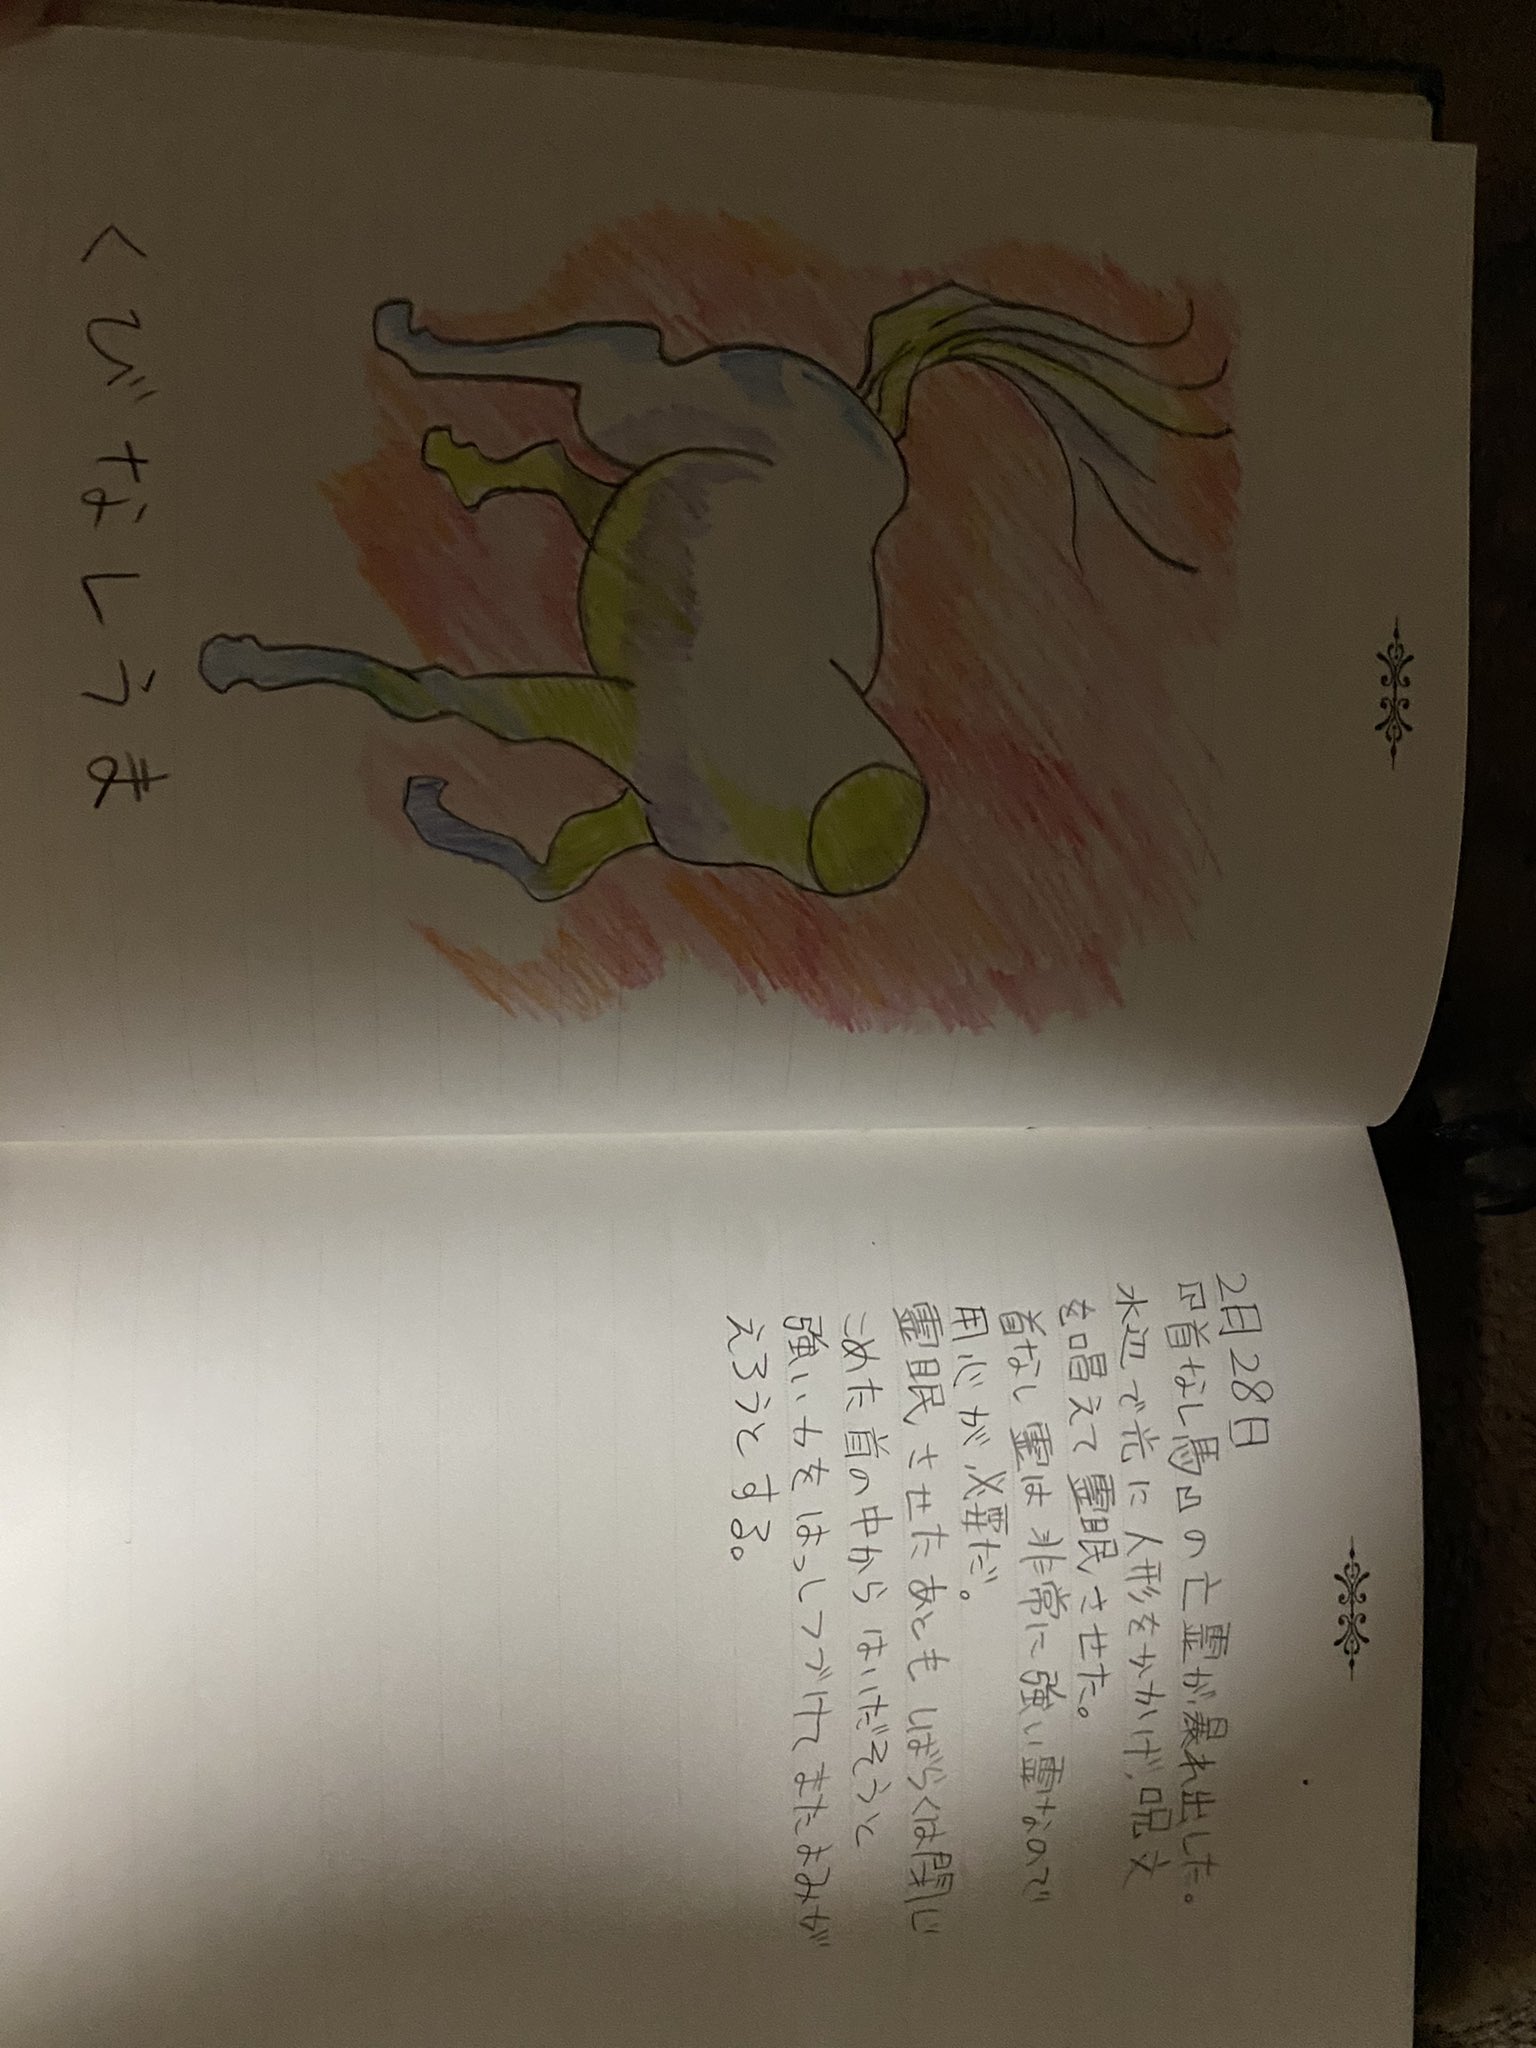 くびなしうま
2月28日
凹首なし馬凸の亡霊が暴れ出した。
水辺で光に人形をかかげ、呪文
を唱えて霊眠させた。
首なし霊は非常に強い霊なので
用心が必要だ。
霊眠させたあともしばらくは閉じ
こめた首の中からはいだそうと
強い力をはっしつづけてまたよみが
えろうとする。